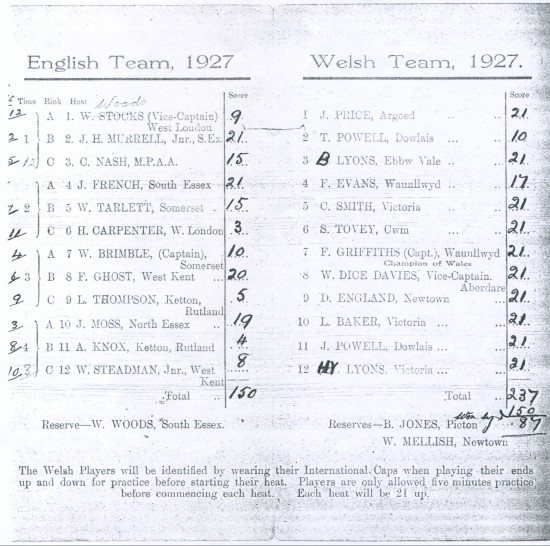 English Team, 1927
Time Rink Heat Woods Score
12 A 1. W. STOCKS (Vice-Captain) 9
West London
2 1 B 2. J. H. MURRELL, Jnr., S.Ex. 21
5 12 C 3. C. NASH, M.P.A.A. 15
A 4 J. FRENCH, South Essex 21
7 2 B 5 W. TARLETT, Somerset .. 15
11 C 6 H. CARPENTER, W. London 3
4 A 7 W. BRIMBLE, (Captain), 10
Somerset
6 3 B 8 F. GHOST, West Kent ... 20
9 C 9 L. THOMPSON, Ketton, 5
Rutland
3 A 10 J. MOSS, North Essex .. 19
8 4 B 11 A. KNOX, Ketton, Rutland 4
10 3 C 12 W. STEADMAN, Jnr., West 8
Kent
Total .. 150
Reserve—W. WOODS, South Essex.
Welsh Team, 1927.
Score
1 J. PRICE, Argoed .. .. 21
2 T. POWELL, Dowlais ... .. 10
3 B LYONS, Ebbw Vale .. .. 21
4 F. EVANS, Waunllwyd .. .. 17
5 C. SMITH, Victoria .. .. 21
6 S. TOVEY, Cwm .. .. 21
7 F. GRIFFITHS (Capt.), Waunllwyd 21
Champion of Wales
8 W. DICE DAVIES, Vice-Captain. 21
Aberdare
9 D. ENGLAND, Newtown .. 21
10 L. BAKER, Victoria ... ... 21
11 J. POWELL, Dowlais ... .. 21
12 HY. LYONS, Victoria ... ... 21
Total ... 237
150
Reserves—B. JONES, Picton won by 87
W. MELLISH, Newtown
The Welsh Players will be identified by wearing their International Caps when playing their ends
up and down for practice before starting their heat. Players are only allowed five minutes practice
before commencing each heat. Each heat will be 21 up.